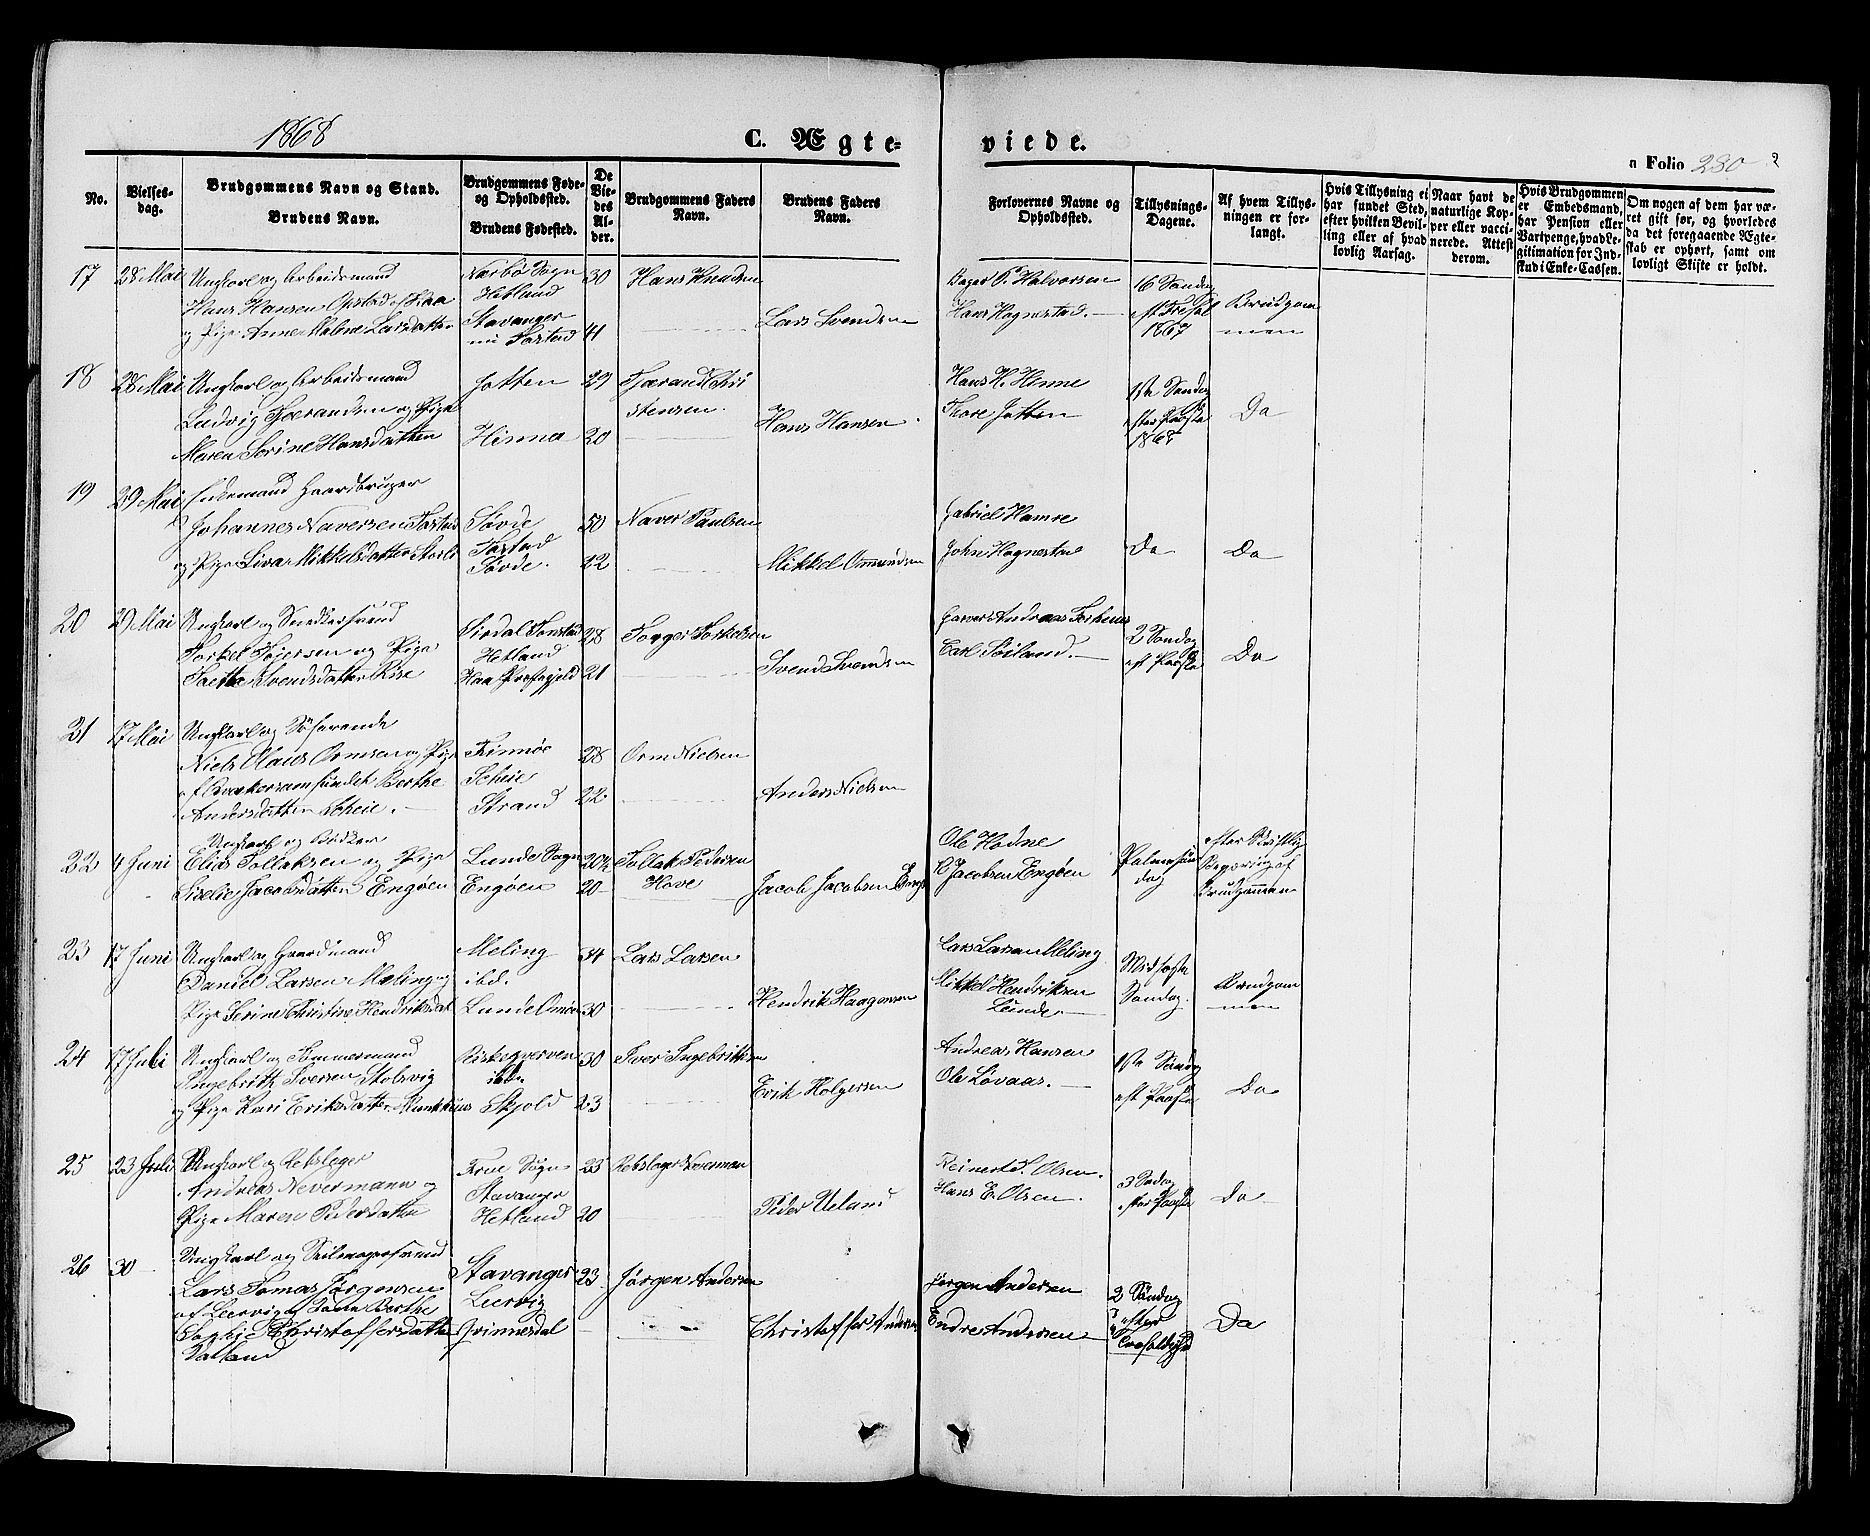 1868
C. Ægte-
viede.
a Folio 230
No.
Vielses-
dag.
Brudgommens Navn og Stand.
Brudens Navn.
Brudgommens Føde-
og Opholdssted.
Brudens Fødested.
De
Vie-
des
Al-
der.
Brudgommens Faders
Navn.
Brudens Faders
Navn.
Forlovernes Navne og
Opholdssted.
Tillysnings-
Dagene.
Af hvem Tillys-
ningen er for-
langt.
Hvis Tillysning ei
har fundet Sted,
efter hvilken Bevil-
ling eller af hvad
lovlig Aarsag.
Naar havt de
naturlige Kop-
per eller vacci-
nerede. Attest
derom.
Hvis Brudgommen
er Embedsmand,
har Pension eller
Vartpenge, hvad Le-
gitimation for Ind-
skud i Enke-Cassen.
Om nogen af dem har væ-
ret gift før, og hvorledes
da det foregaaende Ægte-
skab er ophørt, samt om
lovligt Skifte er holdt.
17
28 Mai
Ungkarl og Arbeidsmand
Hans Hansen Opstad af Haa
og Pige Anne Malene Larsdatter
Nærbø Sogn
Hetland
Stavanger
nu Tastad
30
41
Hans Knudsen
Lars Svendsen
P. Halvorsen
Hans Hognestad.
16 Søndag
eft Trefol
1867
Brudgom
men
18
28 Mai
Ungkarl og Arbeidsmand
Ludvig Tjerandsen og Pige
Maren Serine Hansdatter
Jatten
Hinna
29
20
Tjerand Chri
stensen.
Hans Hansen
Hans H. Hinne
Thore Jatten
1ste Søndag
efter Paaske
1868
Do
19
29 Mai
Enkemand Gaardbruger
Johannes Naversen Tastad
og Pige Siva Mikkelsdatter
Søvde
Tastad
Søvde.
50
22
Naver Paulsen
Mikkel Ommundsen
Gabriel Hamre
John Hognestad
Do
Do
20
29 Mai
Ungkarl og Snedkersvend
Torkel Tøgersen og Pige
Svendsdatter Rise
Sirdal Tonstad
Hetland
Haa
28
21
Tøgger Torkelsen
Svend Svendsen
Garver Andreas
Carl Søiland.
2 Søndag
eft Paaske
Do
21
17 Mai
Ungkarl og Søfarende
Niels Claus Ormsen og Pige
af Qvækersamfundet Berthe
Andersdatter Scheie.
Finnøe
Scheie
Strand
28
22
Orm Nielsen
Anders Nielsen
22
4 Juni
Ungkarl og Bødker
Elias Tollaksen og Pige
Siselie Jacobsdatter Engøen
Lunde Sogn
Engøen
20½
20
Tollak Pedersen
Hove
Jacob Jacobsen
Ole Hodne
Jacobsen Engøen
Palmesøn
dag
efter Skriftlig
Begæring af
Brudgommen
23
17 Juni
Ungkarl og Gaardmand
Daniel Larsen Meling og
Pige Serine Christine Hendriksdat
Meling
ibd.
Lunde
34
30
Lars Larsen
Hendrik Haagensen
Lars Larsen Meling
Mikkel Hendriksen
Lunde
Midfaste
Søndag.
Brudgom
men
24
17 Juli
Ungkarl og Tømmermand
Ingebrith Iversen Stolsvig
og Pige Kari Eriksdatter
ibdm
Skjold
30
23
Iver Ingebritsen
Erik Holgersen
Andreas Hansen
Ole Løvaas.
1ste Søndag
eft Paaske
Do
25
23 Juli
Ungkarl og Rebslager
Andreas Nevermann og
Pige Maren Pedersdatter
Frue Sogn
Stavanger
Hetland
25
20
Rebslager Nevermann
Peder Ueland
Reinert S. Olsen.
Hans E. Olsen.
3 Søndag
efter Paaske
Do
26
30
Ungkarl og Seilmagersvend
Lars Tomas Jørgensen
af Leervig og Berthe
Sophie Christoffersdatter
Stavanger
Leervig
Grinnesdal
23
Jørgen Andersen
Christoffer Andersen
Jørgen Andersen
Endre Andersen
2 Søndag
efter
Trefoldighed
Do